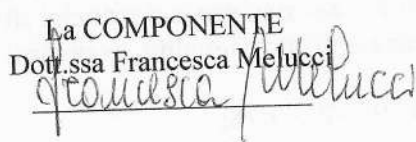 La COMPONENTE
Dott.ssa Francesca Melucci
Francesca Melucci